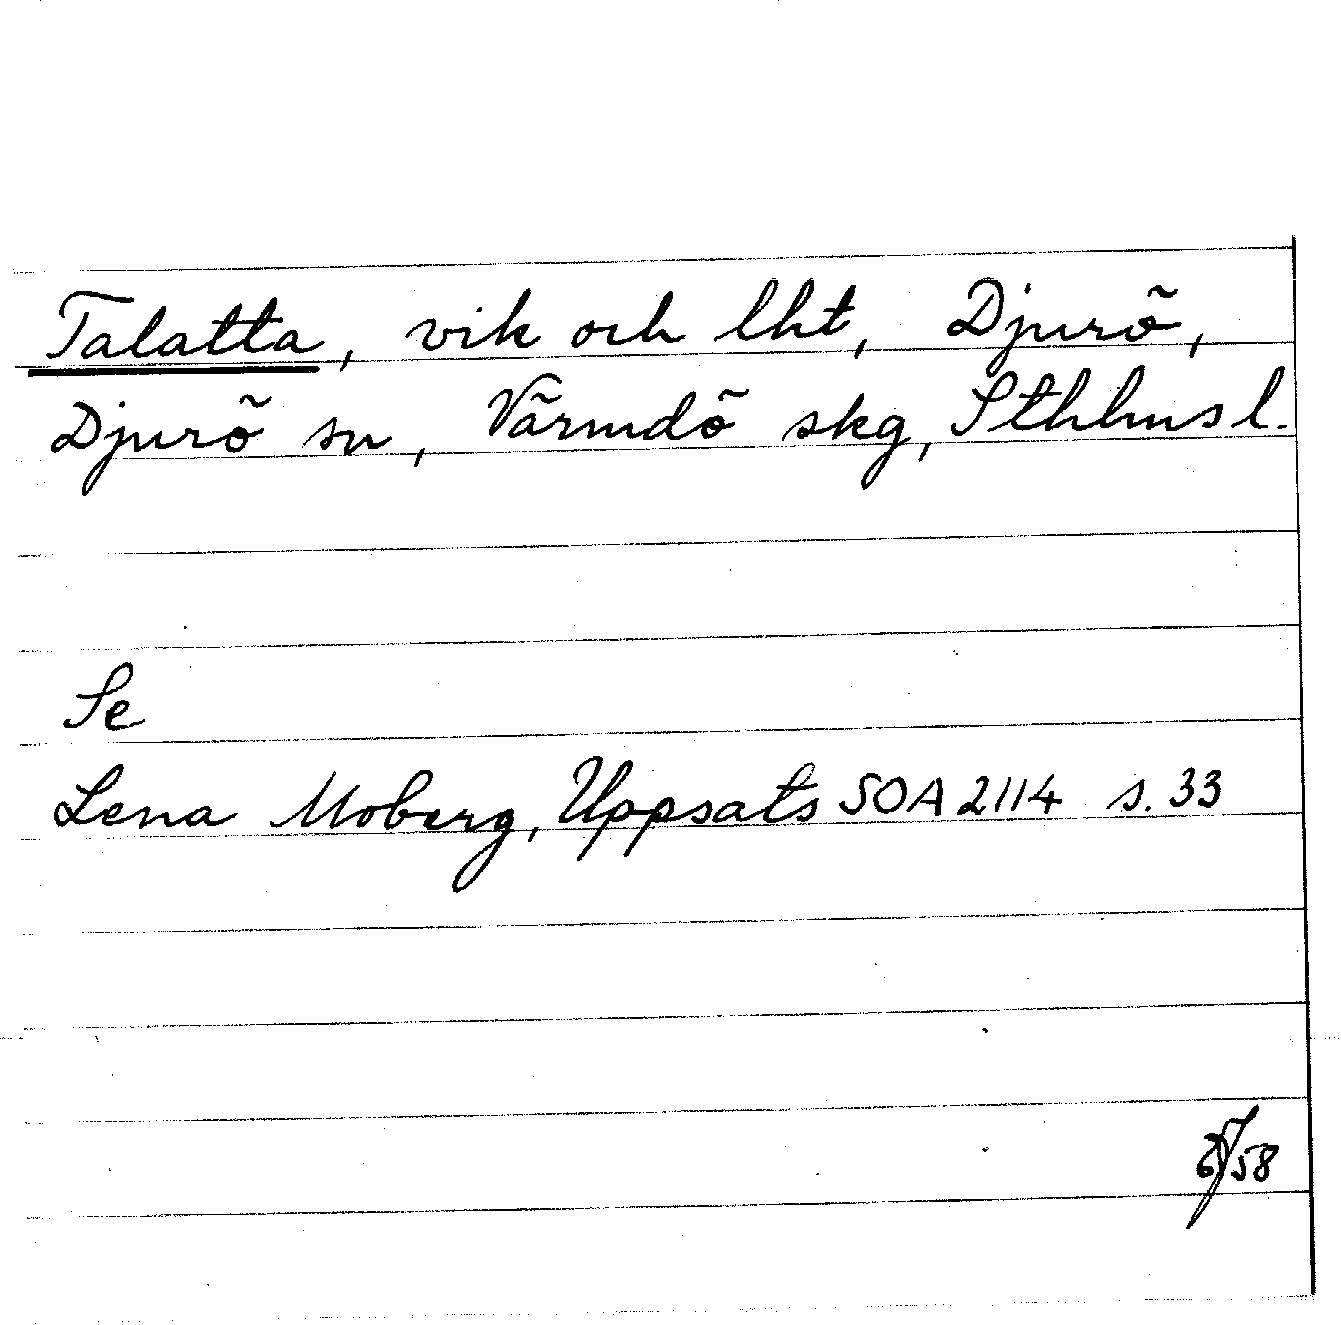 Talatta, vik och lht, Djurö,
Djurö sn, Värmdö skg, Sthlms l.
Se
Lena Moberg, Uppsats SOA 2114 s. 33